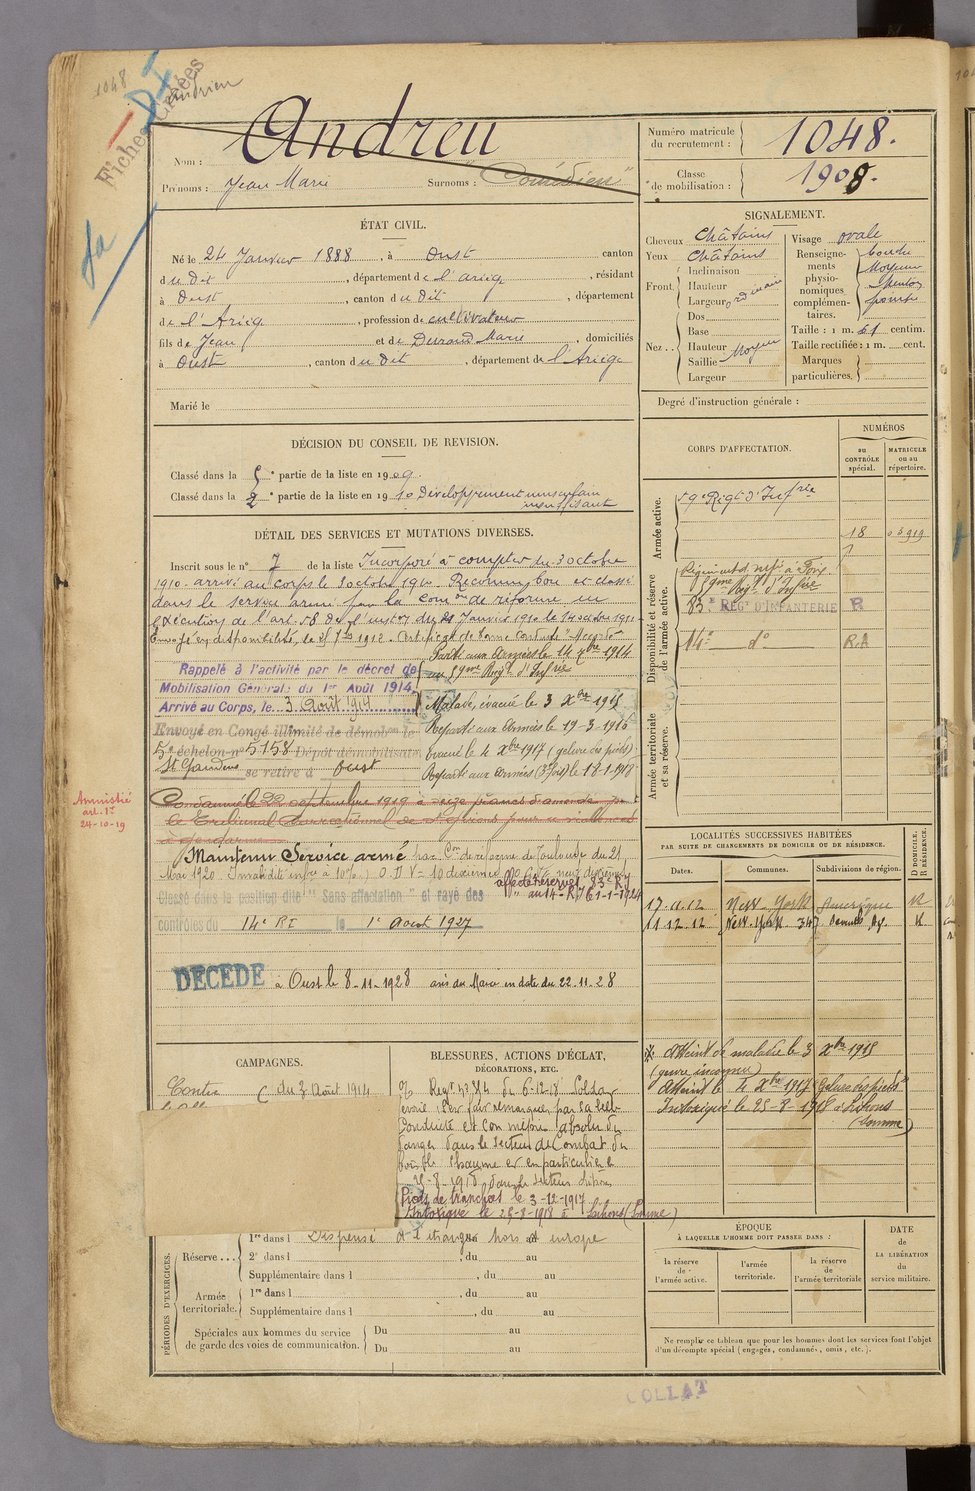 1048
Andrien
Fiches
Andreu
Nom :
Prénoms : Jean Marie Surnoms : "Comédien"
Numéro matricule du recrutement : 1048.
Classe de mobilisation : 1908.
ÉTAT CIVIL.
Né le 24 Janvier 1888, à Oust canton
du dit, département de l'ariège, résidant
à Oust, canton du dit, département
de l'Ariège, profession de cultivateur
fils de Jean et de Durand Marie, domiciliés
à Oust, canton du dit, département de l'Ariège
Marié le
SIGNALEMENT.
Cheveux châtains
Yeux châtains
Front. Inclinaison
Hauteur
Largeur ordinaire
Nez.. Dos
Base
Hauteur
Saillie Moyen
Largeur
Visage ovale
Renseignements physionomiques complémentaires. bouche
Moyenne
Menton
Taille : 1 m. 61 centim.
Taille rectifiée : 1 m. cent.
Marques particulières.
Degré d'instruction générale :
DÉCISION DU CONSEIL DE REVISION.
Classé dans la 5e partie de la liste en 1909.
Classé dans la 2e partie de la liste en 1910 Développement musculaire
insuffisant
DÉTAIL DES SERVICES ET MUTATIONS DIVERSES.
Inscrit sous le n° 7 de la liste Incorporé à compter du 3 octobre
1910. arrivé au corps le 3 octobre 1910. Reconnu bon et classé
dans le service armé par la Comon de réforme en
exécution de l'art. 58 de l'inston du 21 Janvier 1910 le 14 octobre 1911
Envoyé en disponibilité, le 25 7bre 1912. Certificat de bonne conduite "Accordé"
Rappelé à l'activité par le décret de
Mobilisation Générale du 1er Août 1914.
Arrivé au Corps, le 3 Août 1914
Parti aux Armées le 14 7bre 1914
au 59me Regt d'Infrie
Malade, évacué le 3 Xbre 1915
Reparti aux Armées le 19-3-1916
Evacué le 4 Xbre 1917 (gelure des pieds)
Reparti aux Armées (3e fois) le 18-1-1918
Envoyé en Congé illimité de démobon le
5e échelon n° 5158 Dépôt démobilisateur
St Gaudens se retire à Oust
Condamné le 22 septembre 1919 à seize francs d'amende par
le Tribunal Correctionnel de St Girons pour
à gendarmes
Amnistié
art. 1er
24-10-19
Maintenu Service armé par Con de réforme de Toulouse du 21
Mai 1920. Invalidité infre à 10%.
affecté réserve 83e RI
au 14e RI le 1-1-1924
Classé dans la position dite "Sans affectation" et rayé des
contrôles du 14e RI le 1er Aout 1927
DÉCÉDÉ à Oust le 8-11-1928 avis du Maire en date du 22.11.28
CORPS D'AFFECTATION.
NUMÉROS
au CONTRÔLE spécial.
MATRICULE ou au répertoire.
Armée active.
59e Régt d'Infrie
18 03919
Disponibilité et réserve de l'armée active.
Régiment d'infie à Foix
59me Régt d'Infrie
83e RÉGt D'INFANTERIE R
14e do R.A
Armée territoriale et sa réserve.
LOCALITÉS SUCCESSIVES HABITÉES
PAR SUITE DE CHANGEMENTS DE DOMICILE OU DE RÉSIDENCE.
Dates. Communes. Subdivisions de région. D DOMICILE. R RÉSIDENCE.
17.11.12 New-York Amérique R
11.12.12 New-York 347 R
Atteint de maladie le 3 Xbre 1915
Atteint le 4 Xbre 1917 "Gelure des pieds"
Intoxiqué le 25-8-1918 à Lihons
(Somme)
CAMPAGNES.
Contre du 3 Août 1914
BLESSURES, ACTIONS D'ÉCLAT,
DÉCORATIONS, ETC.
Regt 43 du 6-12-18 Soldat
dévoué. S'est fait remarquer par sa belle
conduite et son mépris absolu du
danger dans le secteur de combat du
bois le Chaume et en particulier le
25-8-1918 dans le secteur Lihons
Pieds de tranchées le 3-12-1917
Intoxiqué le 25-8-1918 à Lihons (Somme)
PÉRIODES D'EXERCICES.
Réserve... 1re dans l Dispensé et à l'étranger hors d'europe
2e dans l , du au
Supplémentaire dans l , du au
Armée territoriale. 1re dans l , du au
Supplémentaire dans l , du au
Spéciales aux hommes du service de garde des voies de communication. Du au
Du au
ÉPOQUE
À LAQUELLE L'HOMME DOIT PASSER DANS :
la réserve de l'armée active.
l'armée territoriale.
la réserve de l'armée territoriale
DATE de LA LIBÉRATION du service militaire.
Ne remplir ce tableau que pour les hommes dont les services font l'objet
d'un décompte spécial (engagés, condamnés, omis, etc.).
COLLAT